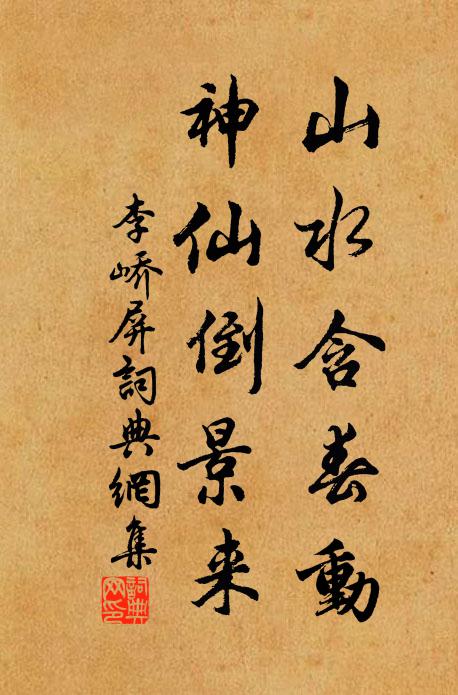 山水含春動
神仙倒景来
李嶠屏詞典網集
詞典网印